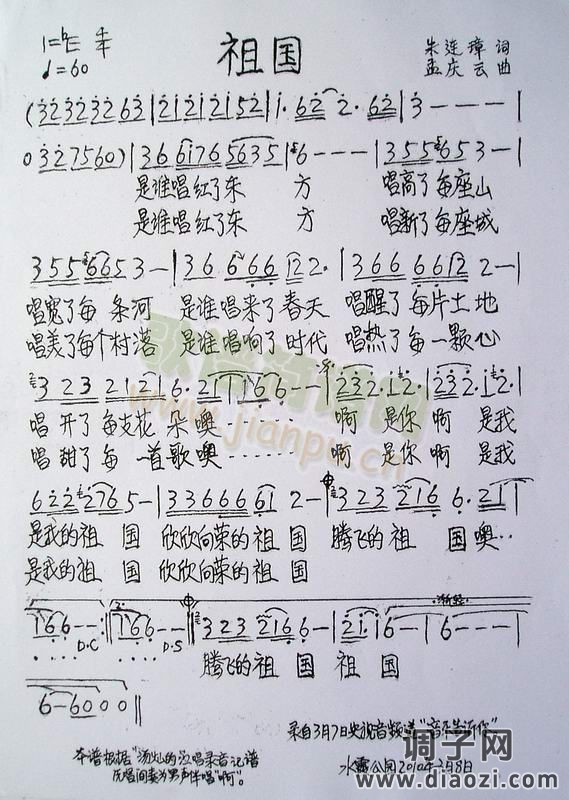 1=♭E 4/4
♩=60
祖国
朱连璋 词
孟庆云 曲
(32323263|21212152|1· 62 2· 62|3---|
0327560)|36 6176 5635|6---|355 653-|
是谁唱红了东 方 唱高了每座山
是谁唱红了东 方 唱新了每座城
355 6653-|36 666 122·|366 6612 2-|
唱宽了每 条河 是谁唱来了春天 唱醒了 每片土地
唱美了每个村落 是谁唱响了时代 唱热了每一颗心
323 2121|6· 21|166---|232·12·|232·12·|
唱 开了 每支花 朵噢 啊 是你啊 是我
唱 甜了 每一首歌噢 啊 是你啊 是我
622 2765-|33666661 2-|323 2166·21|
是我的祖 国 欣欣向荣的祖国 腾飞的祖 国噢
是我的祖 国 欣欣向荣的祖国
166--:|166--|323 2166-|21·16--|6---|
D.C D.S 渐轻
腾飞的祖 国 祖 国
6-6000‖
录自3月7日央视音频道"音乐告诉你"
本谱根据"汤灿的演唱录音记谱
水露公园2010年3月8日
反唱间奏为男声伴唱"啊"。
歌谱简谱网
www.jianpu.cn
调子网
www.diaozi.com